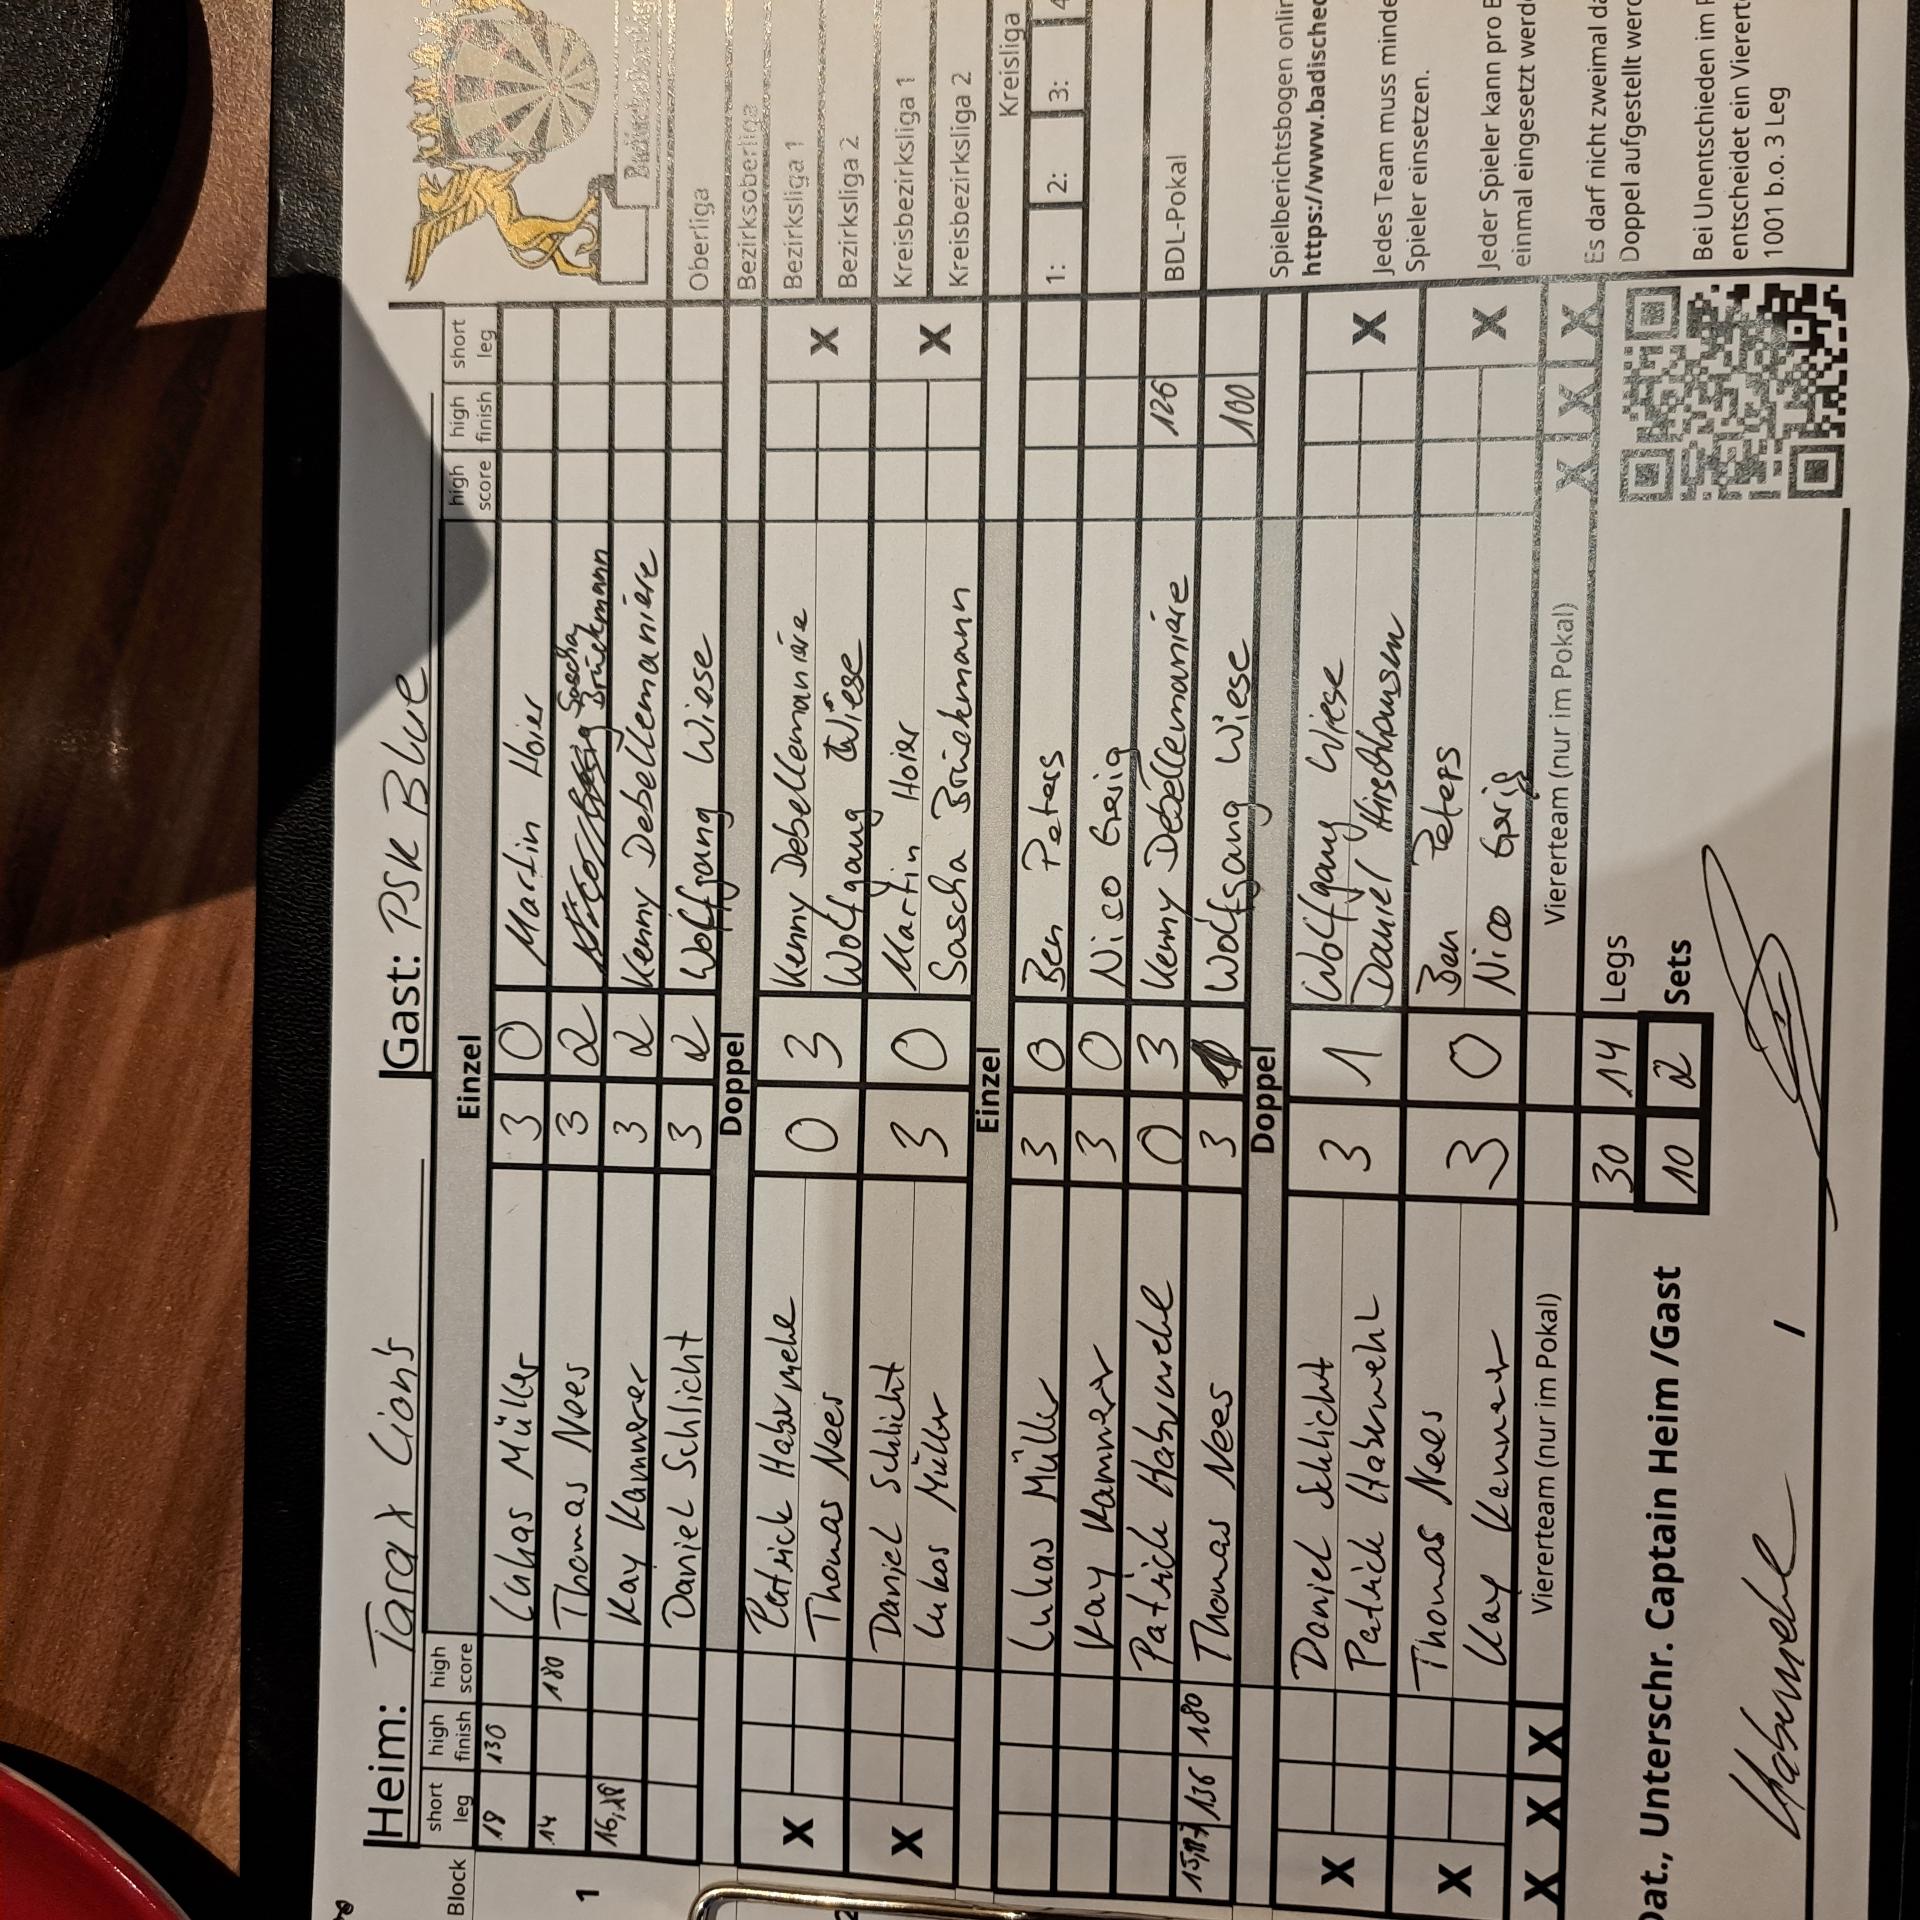 Heim: Tarax Lion's Gast: PSK Blue
Block short leg high finish high score Einzel high score high finish short leg
1
18 130 Lukas Müller 3 0 Martin Hoier
14 180 Thomas Nees 3 2 Sascha Brückmann
16,18 Kay Kammerer 3 2 Kenny Debellemanière
Daniel Schlicht 3 2 Wolfgang Wiese
Doppel
X Patrick Haberwehl 0 3 Kenny Debellemanière X
Thomas Nees Wolfgang Wiese
X Daniel Schlicht 3 0 Martin Hoier X
Lukas Müller Sascha Brückmann
2
Einzel
Lukas Müller 3 0 Ben Peters
Kay Kammerer 3 0 Nico Greig
Patrick Haberwehl 0 3 Kenny Debellemanière 126
136 180 Thomas Nees 3 Wolfgang Wiese 100
Doppel
X Daniel Schlicht 3 1 Wolfgang Wiese X
Patrick Haberwehl Daniel Hirschhausen
X Thomas Nees 3 0 Ben Peters X
Kay Kammerer Nico Greig
X X X Viererteam (nur im Pokal) Viererteam (nur im Pokal) X X X
30 14 Legs
10 2 Sets
Dat., Unterschr. Captain Heim /Gast
Haberwehl
Oberliga
Bezirksoberliga
Bezirksliga 1
Bezirksliga 2
Kreisbezirksliga 1
Kreisbezirksliga 2
Kreisliga
1: 2: 3: 4
BDL-Pokal
Spielberichtsbogen onlin
https://www.badisched
Jedes Team muss minde
Spieler einsetzen.
Jeder Spieler kann pro B
einmal eingesetzt werde
Es darf nicht zweimal da
Doppel aufgestellt werd
Bei Unentschieden im P
entscheidet ein Vierert
1001 b.o. 3 Leg